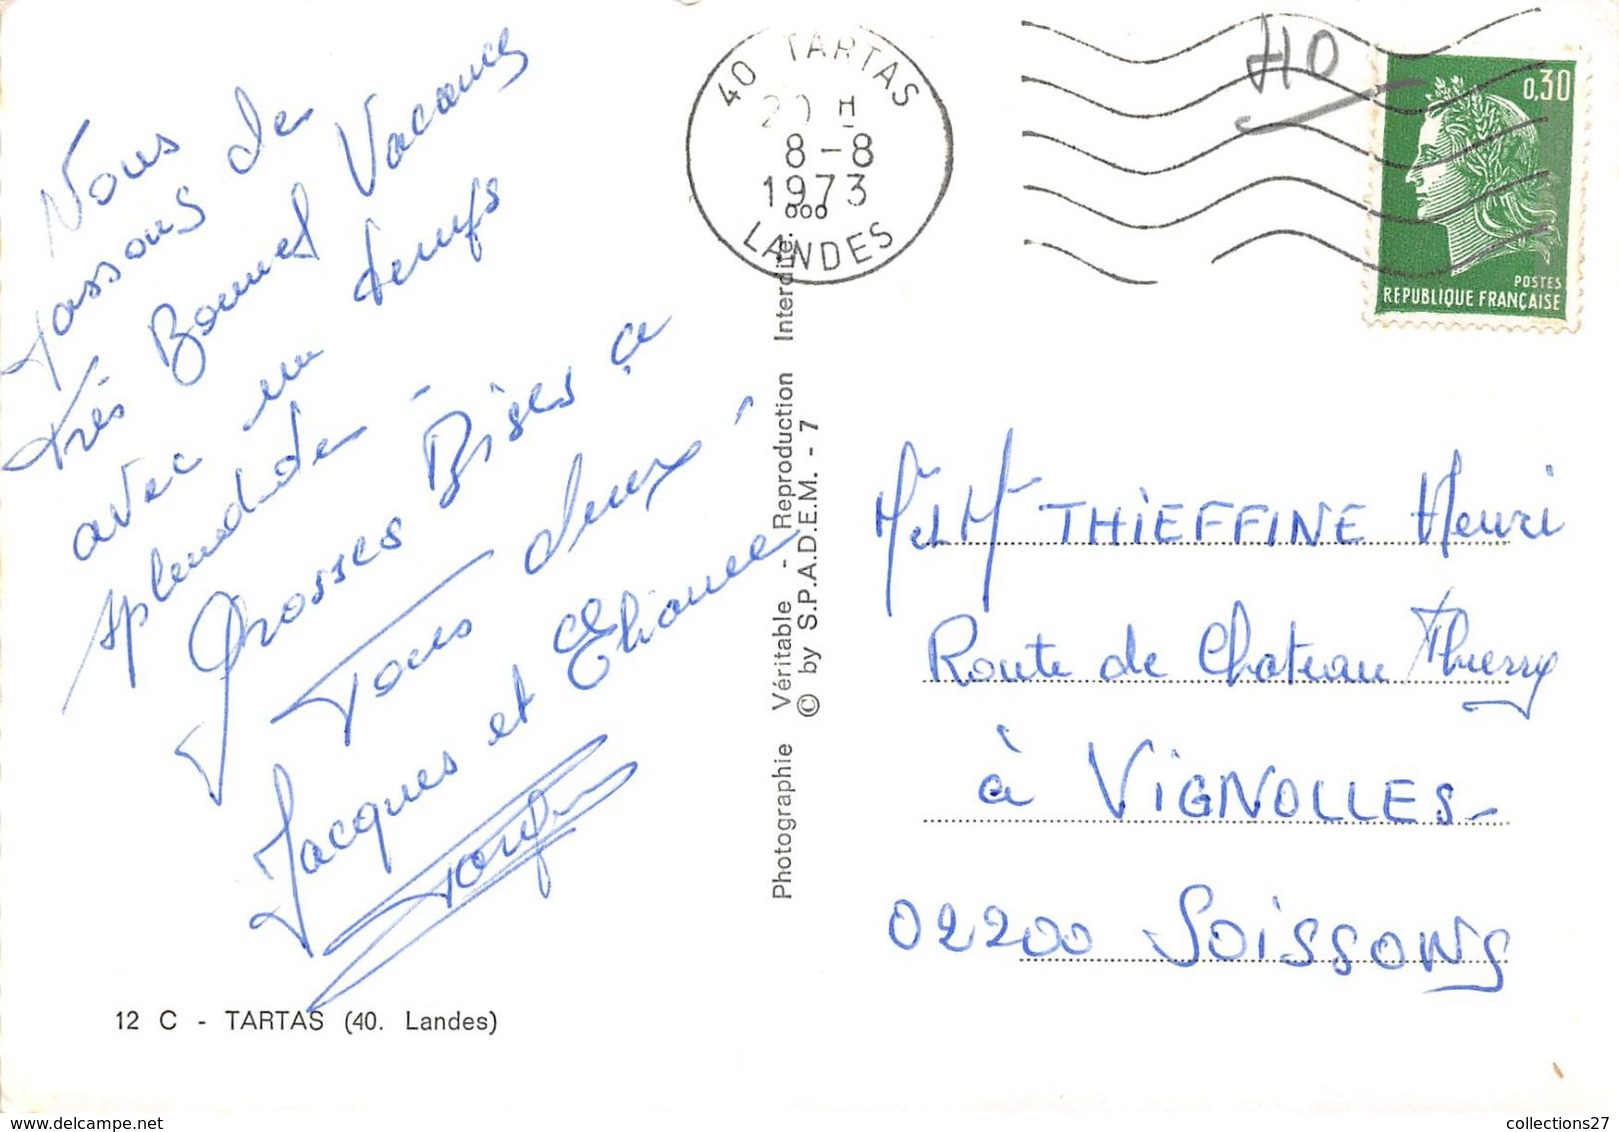 Nous
passons de
très Bonnes Vacances
avec un temps
splendide -
Grosses Bises a
Tous deux
Jacques et Elianne
40 TARTAS
20 H
8-8
1973
LANDES
40
0,30
POSTES
REPUBLIQUE FRANÇAISE
Photographie Véritable - Reproduction Interdite.
© by S.P.A.D.E.M. - 7
Mr et Mme THIEFFINE Henri
Route de Chateau Thierry
à VIGNOLLES-
02200 SOISSONS
12 C - TARTAS (40. Landes)
collections27